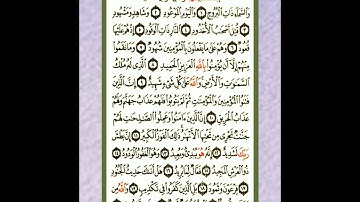 وَالسَّمَاءِ ذَاتِ الْبُرُوجِ ١ وَالْيَوْمِ الْمَوْعُودِ ٢ وَشَاهِدٍ وَمَشْهُودٍ
٣ قُتِلَ أَصْحَابُ الْأُخْدُودِ ٤ النَّارِ ذَاتِ الْوَقُودِ ٥ إِذْ هُمْ عَلَيْهَا
قُعُودٌ ٦ وَهُمْ عَلَىٰ مَا يَفْعَلُونَ بِالْمُؤْمِنِينَ شُهُودٌ ٧ وَمَا نَقَمُوا
مِنْهُمْ إِلَّا أَنْ يُؤْمِنُوا بِاللَّهِ الْعَزِيزِ الْحَمِيدِ ٨ الَّذِي لَهُ مُلْكُ
السَّمَٰوَٰتِ وَالْأَرْضِ وَاللَّهُ عَلَىٰ كُلِّ شَيْءٍ شَهِيدٌ ٩ إِنَّ الَّذِينَ
فَتَنُوا الْمُؤْمِنِينَ وَالْمُؤْمِنَٰتِ ثُمَّ لَمْ يَتُوبُوا فَلَهُمْ عَذَابُ جَهَنَّمَ وَلَهُمْ
عَذَابُ الْحَرِيقِ ١٠ إِنَّ الَّذِينَ ءَامَنُوا وَعَمِلُوا الصَّٰلِحَٰتِ لَهُمْ
جَنَّٰتٌ تَجْرِي مِنْ تَحْتِهَا الْأَنْهَٰرُ ذَٰلِكَ الْفَوْزُ الْكَبِيرُ ١١ إِنَّ بَطْشَ
رَبِّكَ لَشَدِيدٌ ١٢ إِنَّهُ هُوَ يُبْدِئُ وَيُعِيدُ ١٣ وَهُوَ الْغَفُورُ الْوَدُودُ ١٤
ذُو الْعَرْشِ الْمَجِيدُ ١٥ فَعَّالٌ لِمَا يُرِيدُ ١٦ هَلْ أَتَىٰكَ حَدِيثُ الْجُنُودِ
١٧ فِرْعَوْنَ وَثَمُودَ ١٨ بَلِ الَّذِينَ كَفَرُوا فِي تَكْذِيبٍ ١٩ وَاللَّهُ مِنْ